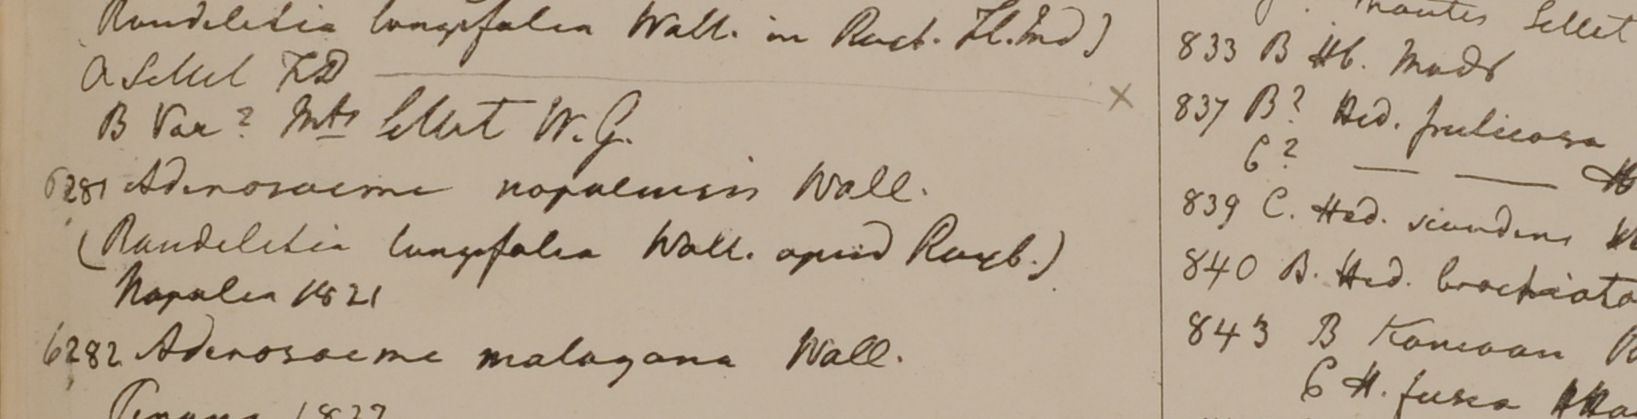 Rondeletia longifolia Wall. in Roxb. Fl. Ind)
A Sillet FD
B Var? Mts Sillet W. G.
6281 Adenosacme nepalensis Wall.
(Rondeletia longifolia Wall. apud Roxb.)
Napalia 1821
6282 Adenosacme malayana Wall.
Penang 1822
montes Sillet
833 B Hb. Madr
837 B? Hed. fruticosa
C? — —
839 C. Hed. scandens
840 B. Hed. brachiata
843 B Kamaon
C H. fusca